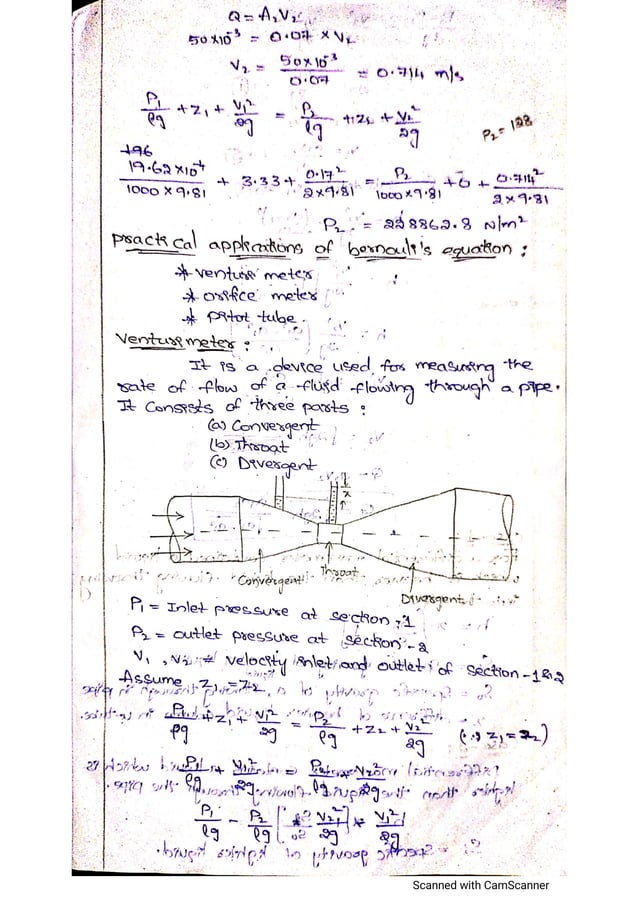 Q = A₂V₂
50×10⁻³ = 0.07 × V₂
V₂ = 50×10⁻³ / 0.07 = 0.714 m/s
P₁/ρg + Z₁ + V₁²/2g = P₂/ρg + Z₂ + V₂²/2g
P₂ = 128
+96
19.62×10⁴ / 1000 × 9.81 + 3.33 + 0.17² / 2×9.81 = P₂ / 1000×9.81 + 0 + 0.714² / 2×9.81
P₂ = 228862.8 N/m²
practical applications of bernouli's equation :
* venturi meter
* orifice meter
* pitot tube.
Venturimeter :
It is a device used for measuring the
rate of flow of a fluid flowing through a pipe.
It consists of three parts :
(a) Convergent
(b) Throat
(c) Divergent
x
Convergent
Throat
Divergent
P₁ = Inlet pressure at section - 1
P₂ = outlet pressure at section - 2
V₁, V₂ = velocity inlet and outlet of section - 1 & 2
Assume Z₁ = Z₂
P₁/ρg + Z₁ + V₁²/2g = P₂/ρg + Z₂ + V₂²/2g (∵ Z₁ = Z₂)
P₁/ρg + V₁²/2g = P₂/ρg + V₂²/2g
P₁/ρg - P₂/ρg = V₂²/2g - V₁²/2g
Scanned with CamScanner